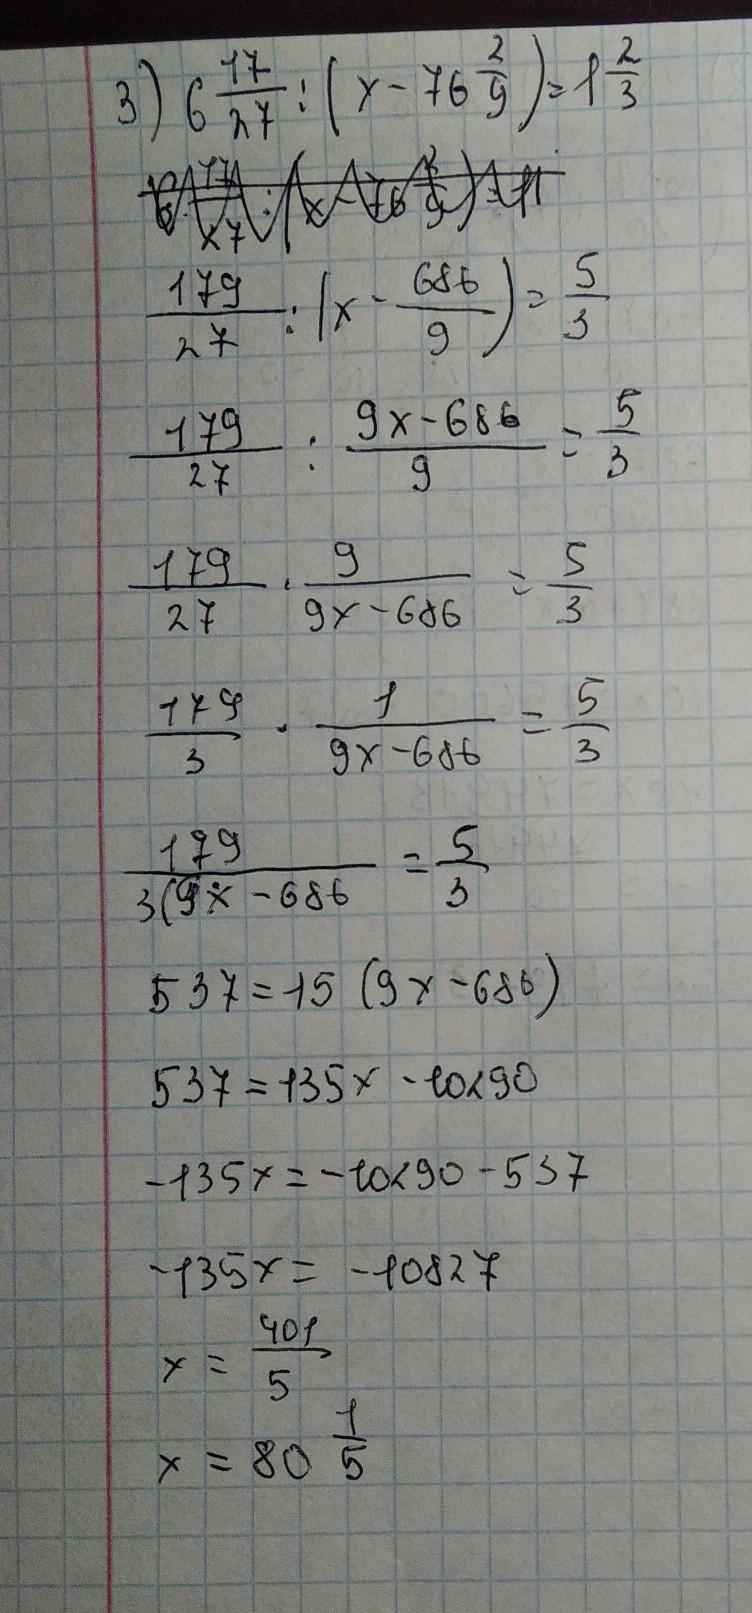 3) 6 17/27 : (x - 76 2/9) = 1 2/3
179/27 : (x - 686/9) = 5/3
179/27 : 9x-686/9 = 5/3
179/27 · 9/9x-686 = 5/3
179/3 · 1/9x-686 = 5/3
179/3(9x-686 = 5/3
537=15 (9x-686)
537=135x -10290
-135x=-10290-537
-135x= -10827
x = 401/5
x = 80 1/5